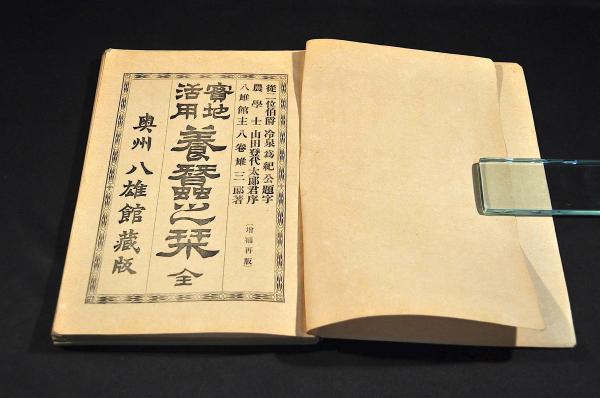 從二位伯爵 冷泉爲紀公題字
農學士 山田登代太郎君序
八雄館主 八卷雄三郎著
〔增補再版〕
實地活用
養蠶之栞 全
奥州 八雄館藏版